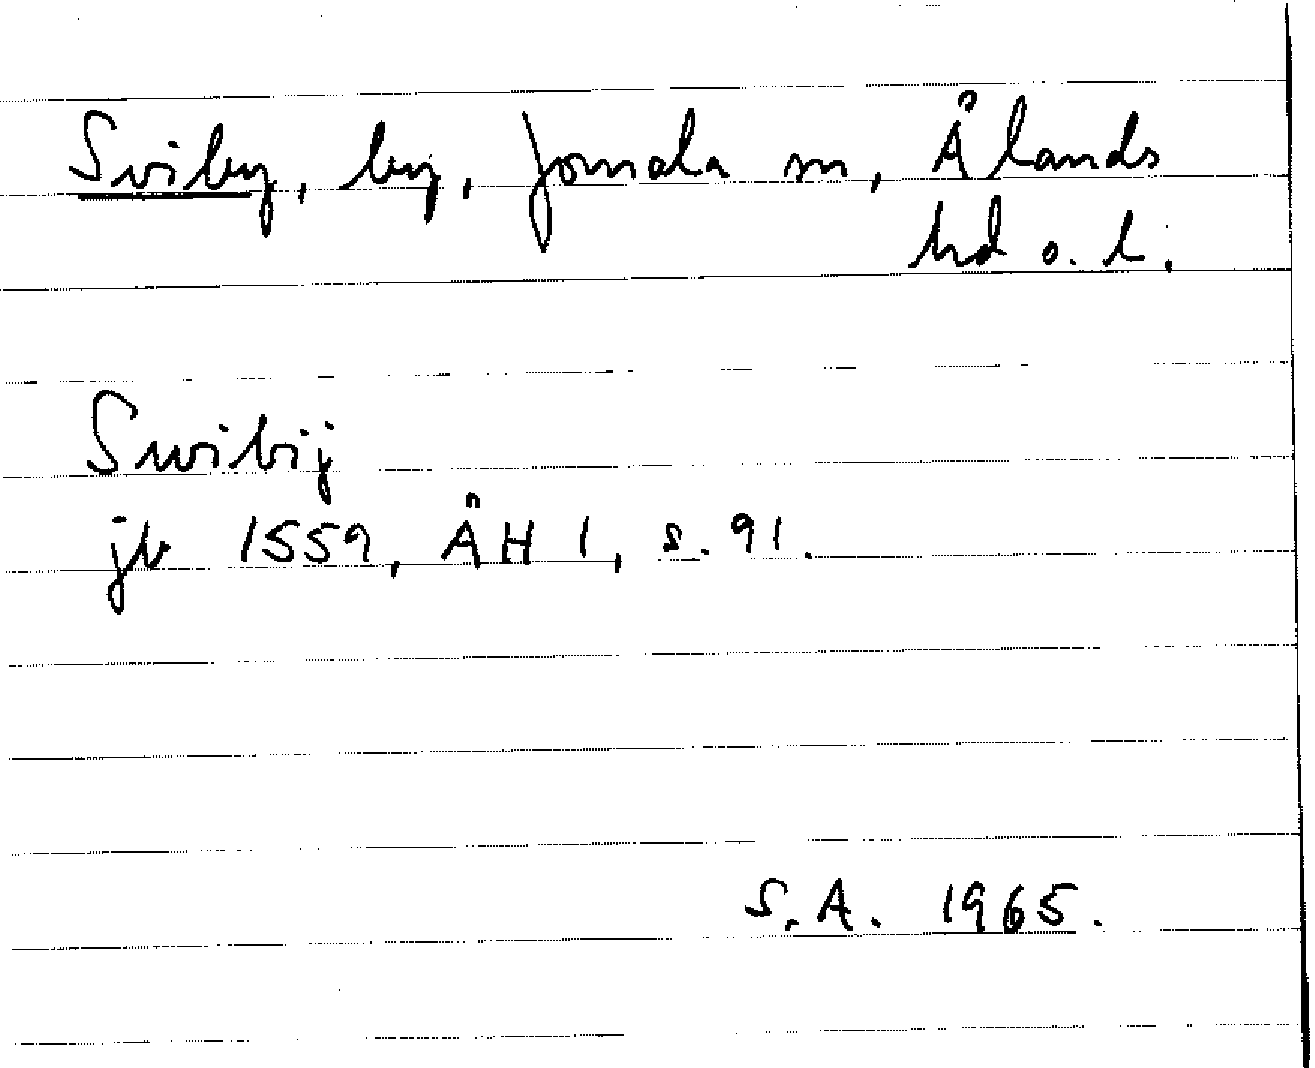 Sviby, by, Jomala sn, Ålands
hd o. l.
Swibij
jb 1559, ÅH 1, s. 91.
S.A. 1965.